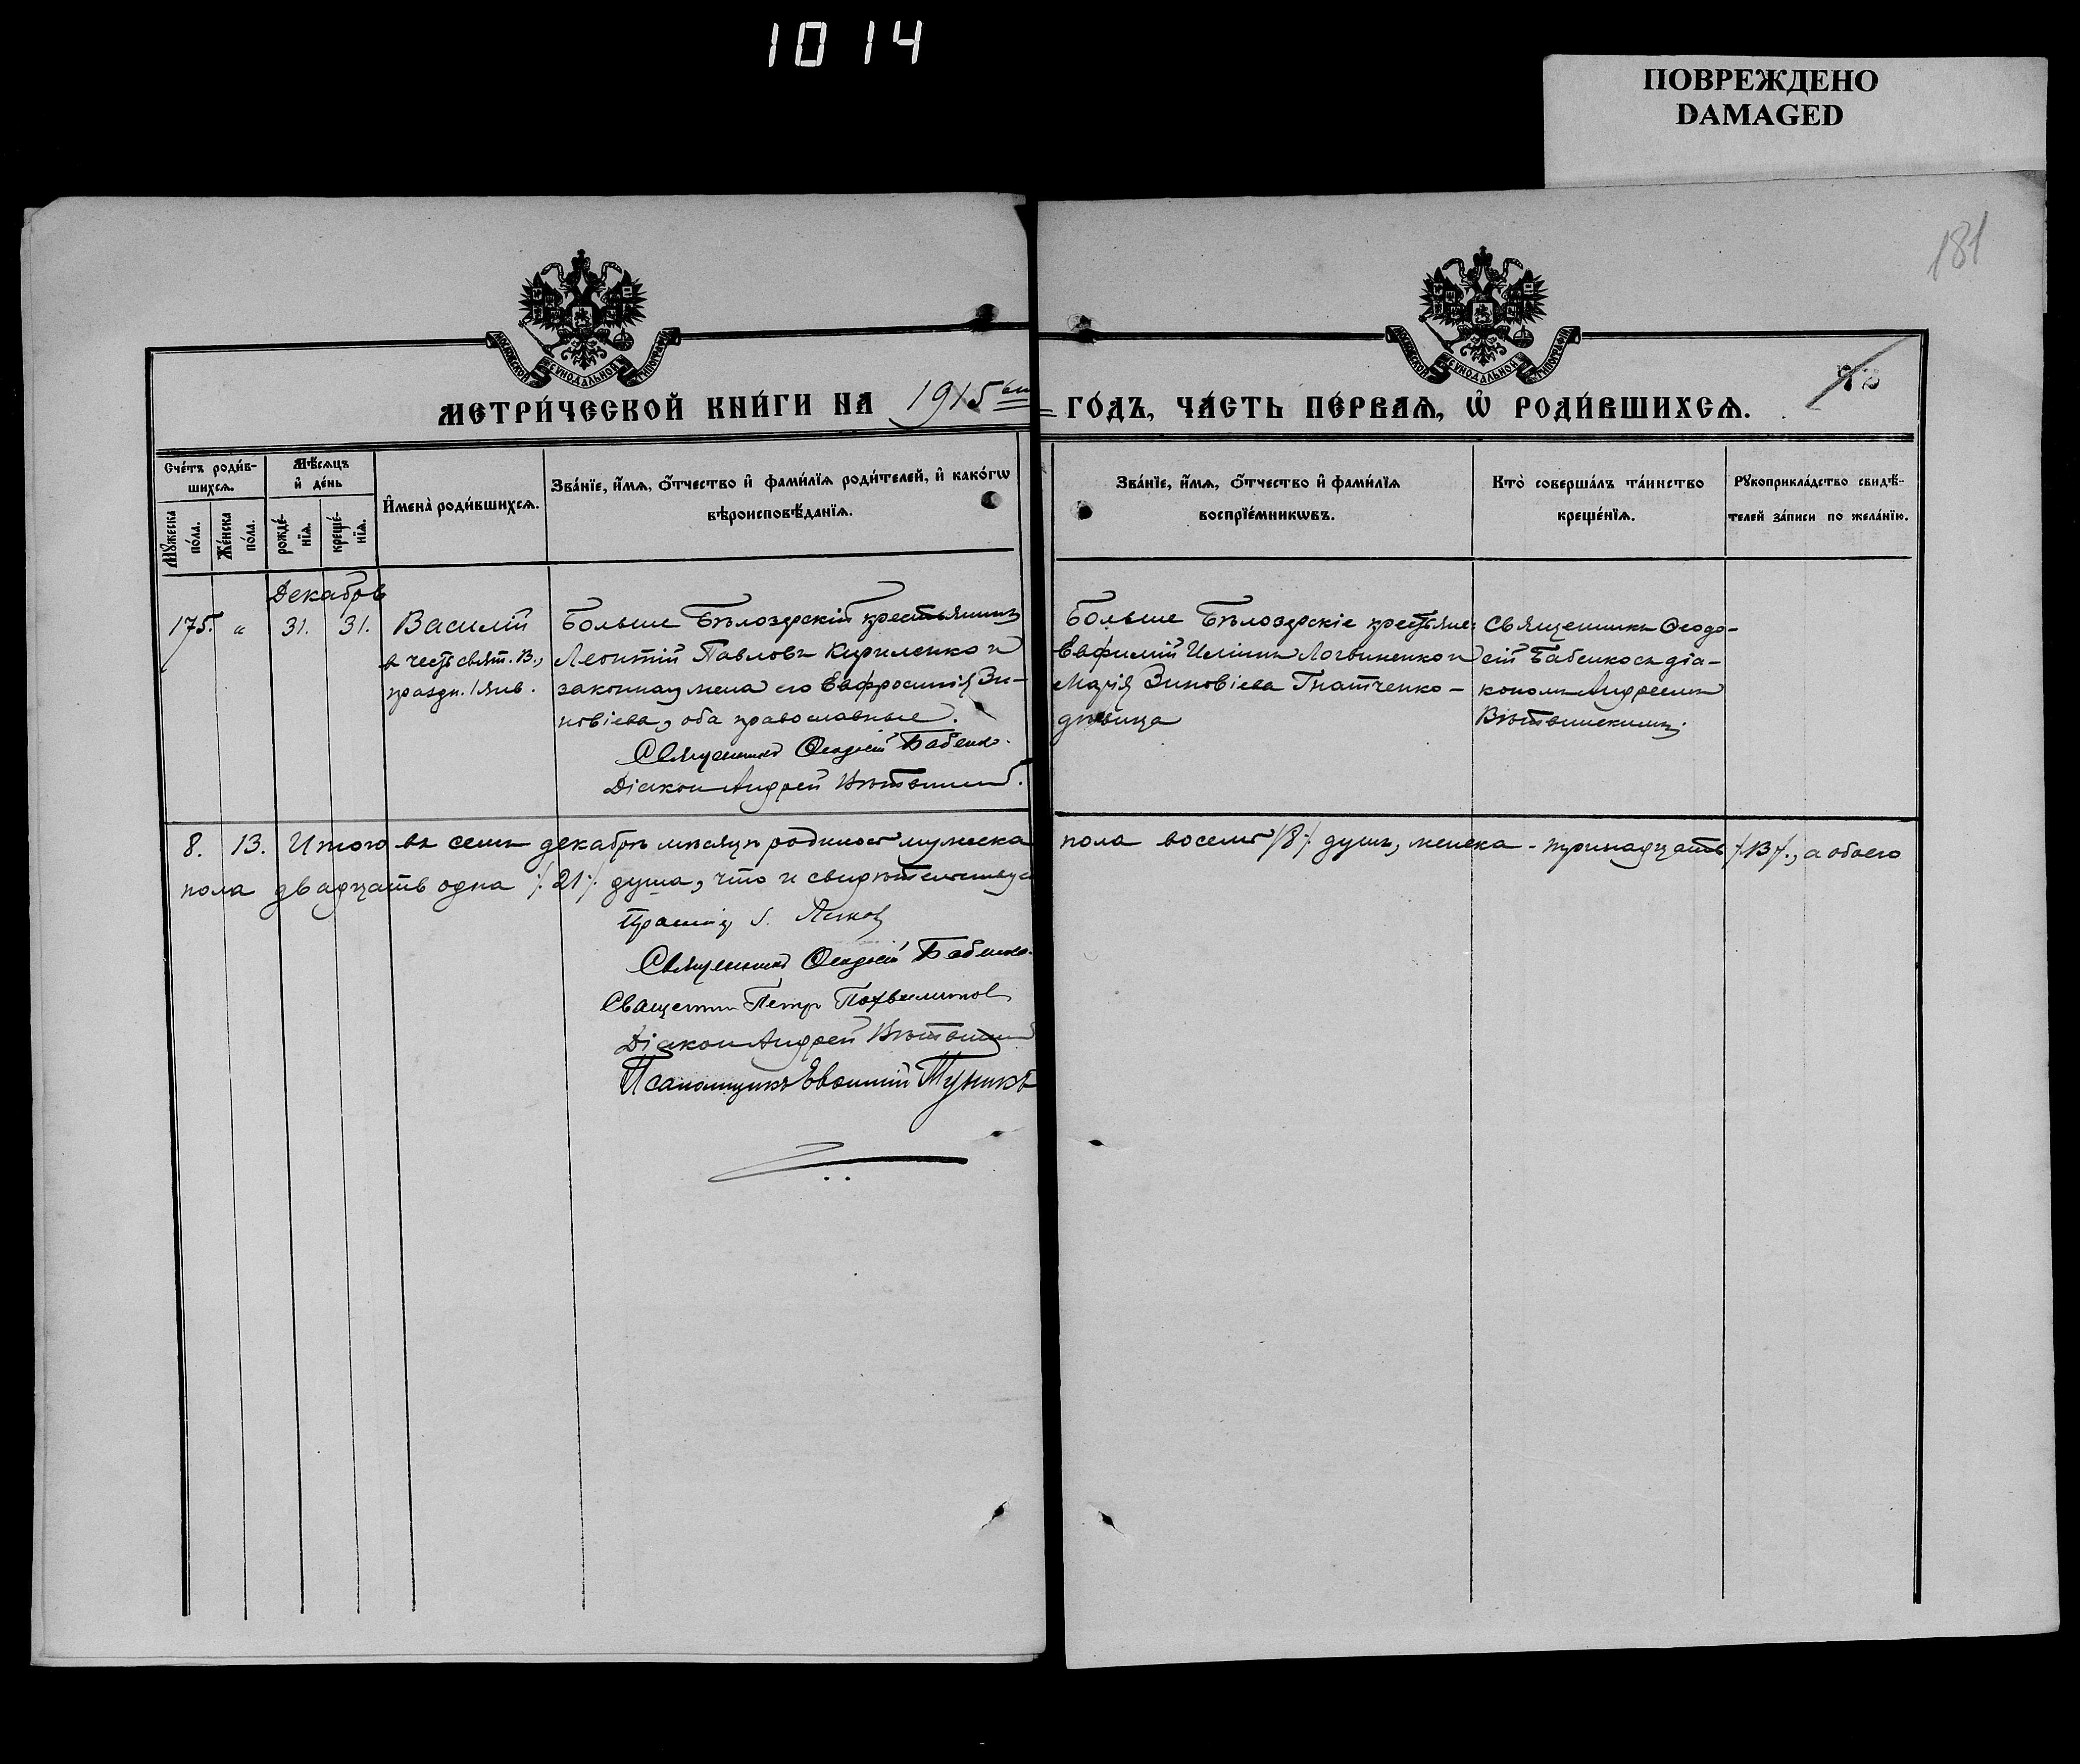 1014
ПОВРЕЖДЕНО
DAMAGED
181
МЕТРИ́ЧЕСКОЙ КНИ́ГИ НА 1915 ГО́ДЪ, ЧА́СТЬ ПЕ́РВАѦ, Ѡ҆ РОДИ́ВШИХСѦ.
Сче́тъ роди́в-
шихсѧ.
Мꙋ́жеска по́ла.
Же́нска по́ла.
Мѣ́сѧцъ и҆ де́нь
рожде́-нїѧ.
креще́-нїѧ.
И҆мена̀ роди́вшихсѧ.
Зва́нїе, и҆́мѧ, ѻ҆́тчество и҆ фами́лїѧ роди́телей, и҆ како́гѡ
вѣроисповѣ́данїѧ.
Зва́нїе, и҆́мѧ, ѻ҆́тчество и҆ фами́лїѧ
воспрїе́мникѡвъ.
Кто̀ соверша́лъ та́инство
креще́нїѧ.
Рꙋкоприкла́дство свидѣ́-
телей за́писи по жела́нїю.
Декабрь
175. " 31. 31.
Василій
в честь свят. В.,
праздн. 1 янв.
Больше Бѣлозерскій крестьянинъ
Леонтій Павловъ Кириленко и
законная жена его Евфросинія Зи-
новіева, оба православные.
Священникъ Ѳеодосій Бабенко.
Діаконъ Андрей
Больше Бѣлозерскіе крестьяне:
Евфимій Иліинъ Логвиненко и
Марія Зиновіева Гнатченко -
дѣвица
Священникъ Ѳеодо-
сій Бабенко съ діа-
кономъ Андреемъ
8. 13. Итого въ семъ декабрѣ мѣсяцѣ родилось мужеска пола восемь /8/ душъ, женска - тринадцать /13/., а обоего
пола двадцать одна /21/. душа, что и свидѣтельствуемъ
Священникъ Ѳеодосій Бабенко.
Священникъ Петръ
Діаконъ Андрей
Псаломщикъ